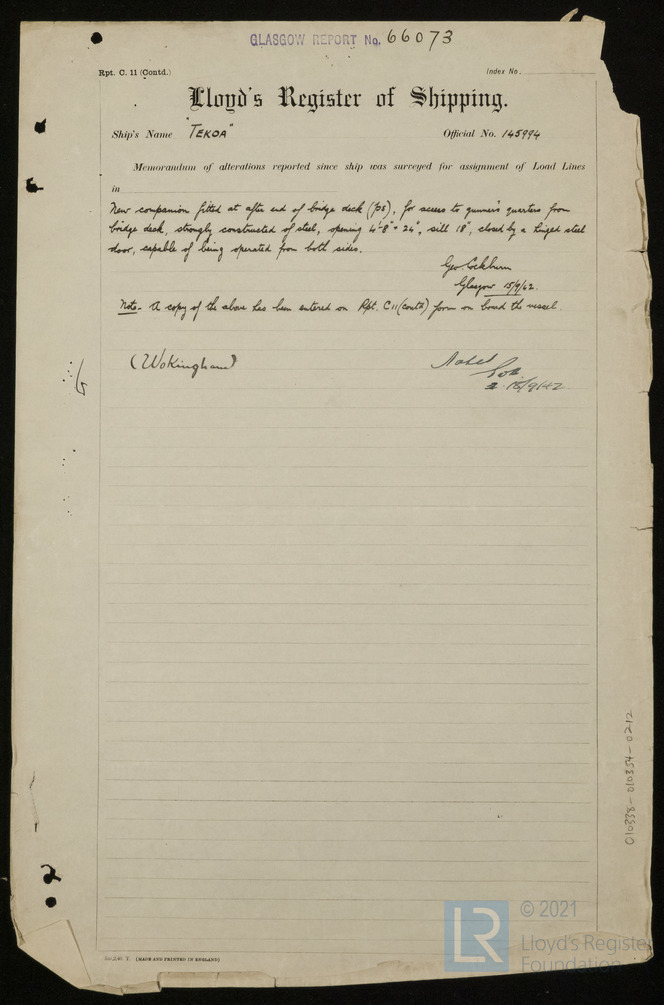 GLASGOW REPORT No. 66073
Rpt. C. 11 (Contd.)
Index No.
Lloyd's Register of Shipping.
Ship's Name "TEKOA"
Official No. 145994
Memorandum of alterations reported since ship was surveyed for assignment of Load Lines
in
New companion fitted at after end of bridge deck (P&S), for access to gunner's quarters from
bridge deck, strongly constructed of steel, opening 4'-8" × 24", sill 18", closed by a hinged steel
door, capable of being operated from both sides.
Geo. Cockburn
Glasgow 15/9/42.
Note. A copy of the above has been entered on Rpt. C11 (contd) form on board the vessel.
(Wokingham)
Noted
18/9/42
010338-010354-0212
(MADE AND PRINTED IN ENGLAND)
LR
© 2021
Lloyd's Register
Foundation